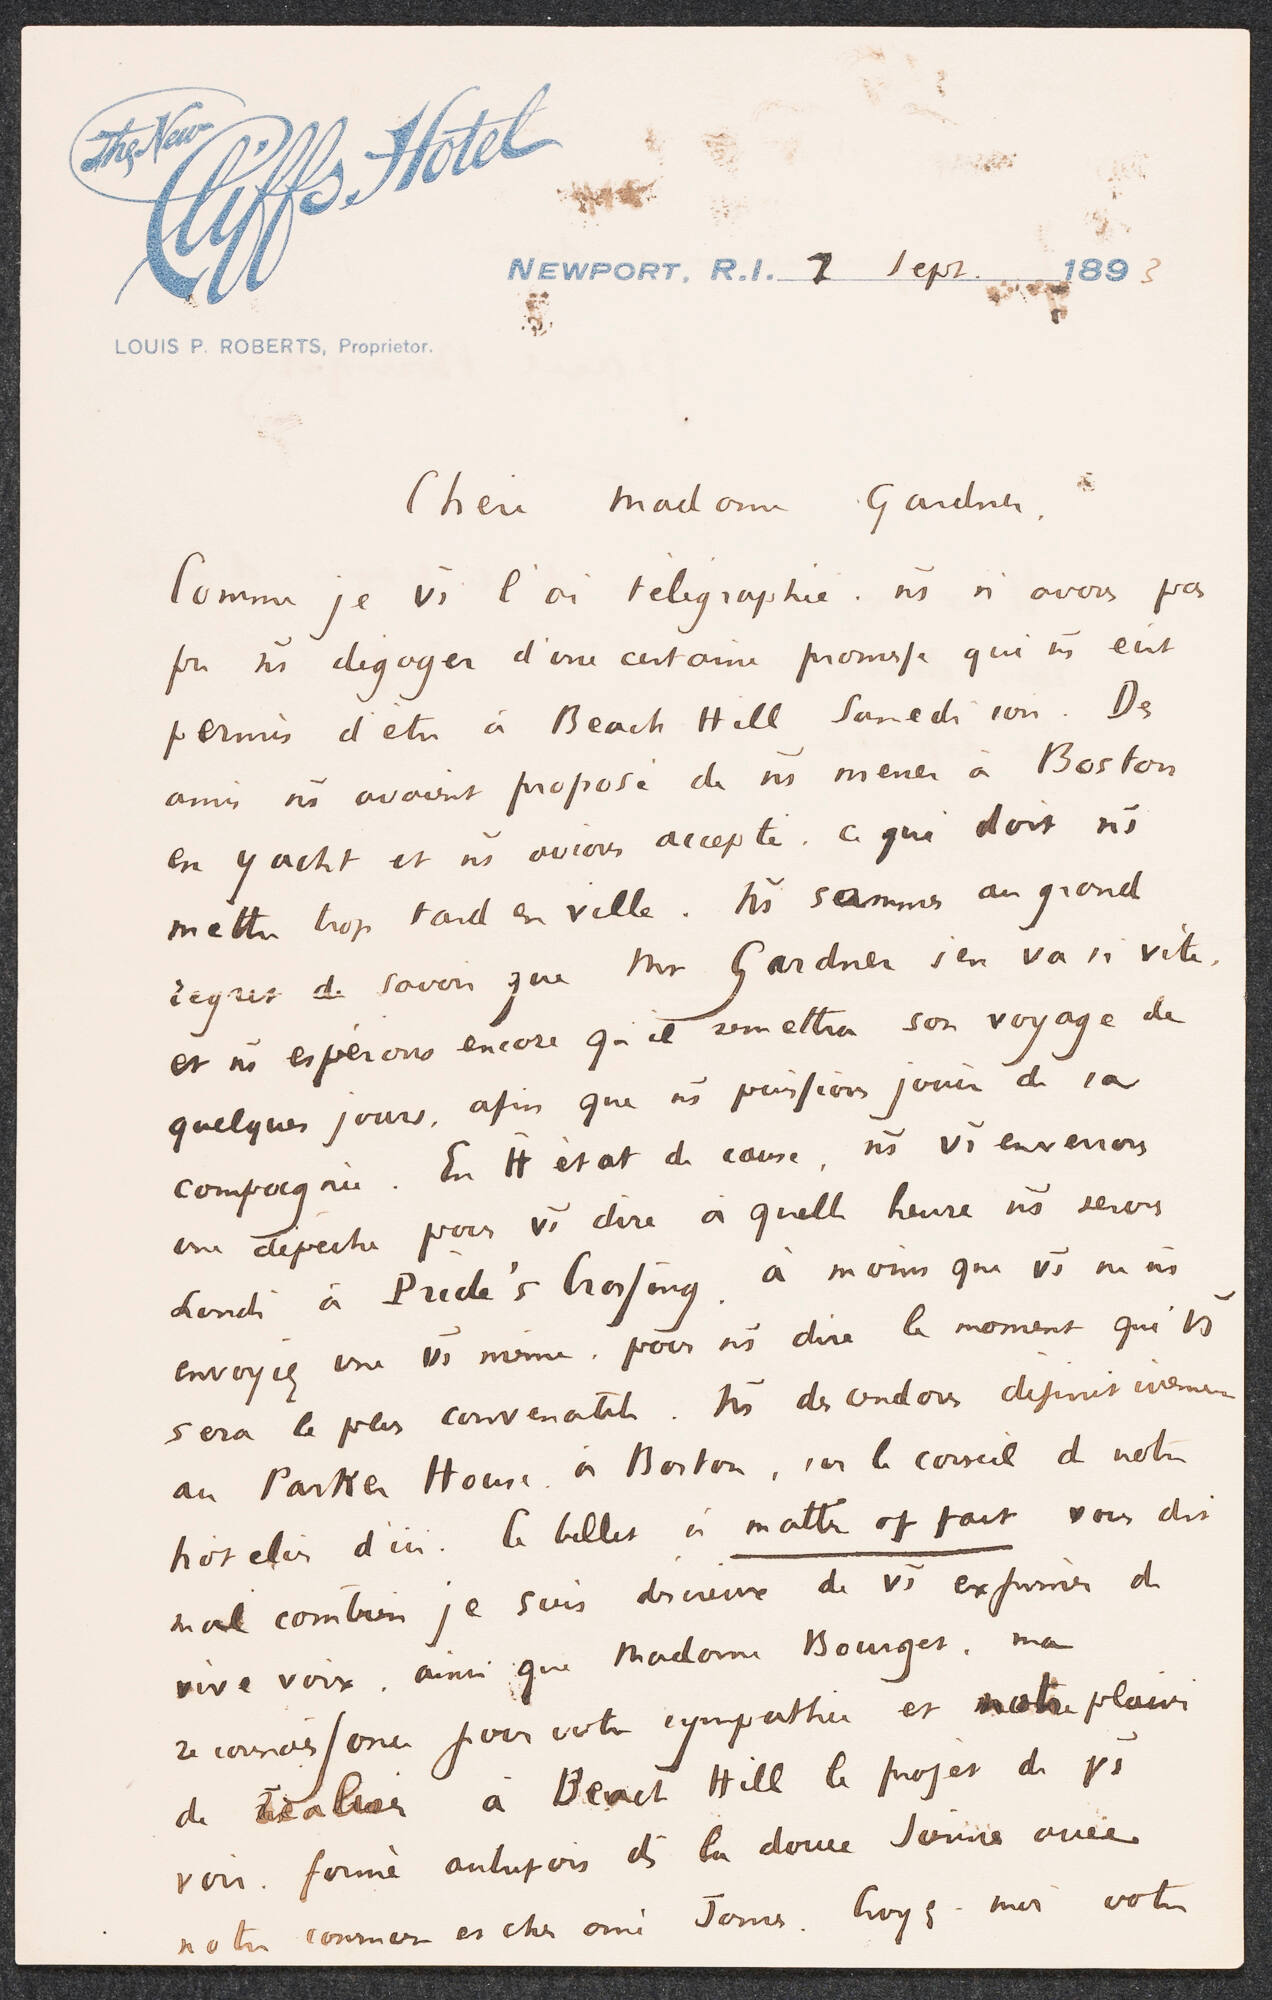 The New
Cliffs Hotel
NEWPORT, R.I. 7 Sept. 1893
LOUIS P. ROBERTS, Proprietor.
Chère Madame Gardner,
Comme je vs l'ai télégraphié, ns n'avons pas
pu ns dégager d'une certaine promesse qui ns eut
permis d'être à Beach Hill Samedi soir. Des
amis ns avaient proposé de ns mener à Boston
en yacht et ns avions accepté, ce qui doit ns
mettre trop tard en ville. Ns sommes au grand
regret de savoir que Mr Gardner s'en va si vite,
et ns espérons encore qu'il remettra son voyage de
quelques jours, afin que ns puissions jouir de sa
compagnie. En tt état de cause, ns vs enverrons
une dépêche pour vs dire à quelle heure ns serons
Lundi à Pride's Crossing, à moins que vs ne ns
envoyiez une vs même, pour ns dire le moment qui vs
sera le plus convenable. Ns descendons définitivement
au Parker House à Boston, sur le conseil de notre
hôtelier d'ici. Ce billet si matter of fact vous dit
mal combien je suis désireux de vs exprimer de
vive voix, ainsi que Madame Bourget, ma
reconnaissance pour votre sympathie et notre plaisir
de réaliser à Beach Hill le projet de vs
voir, formé autrefois ds la douce Sienne avec
notre commun et cher ami James. Croyez-moi votre